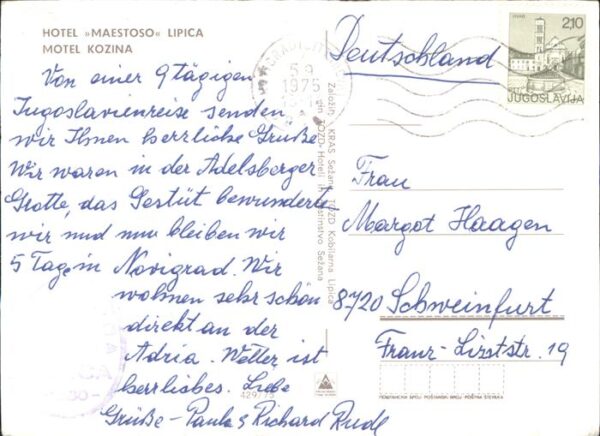 HOTEL »MAESTOSO« LIPICA
MOTEL KOZINA
Von einer 9 tägigen
Jugoslavienreise senden
wir Ihnen herrliche Grüße.
Wir waren in der Adelsberger
Grotte, das Gestüt bewunderte
wir und nun bleiben wir
5 Tage in Novigrad. Wir
wohnen sehr schön
direkt an der
Adria. Wetter ist
herrliches. Liebe
Grüße - Paula & Richard Rudl
5 9
1975
Založil: KRAS Sežana, TOZD Kobilarna Lipica
in TOZD-Hoteli in gostinstvo Sežana
429/75
Deutschland
2,10
JUGOSLAVIJA
Frau
Margot Haagen
8720 Schweinfurt
Franz-Lisztstr. 19